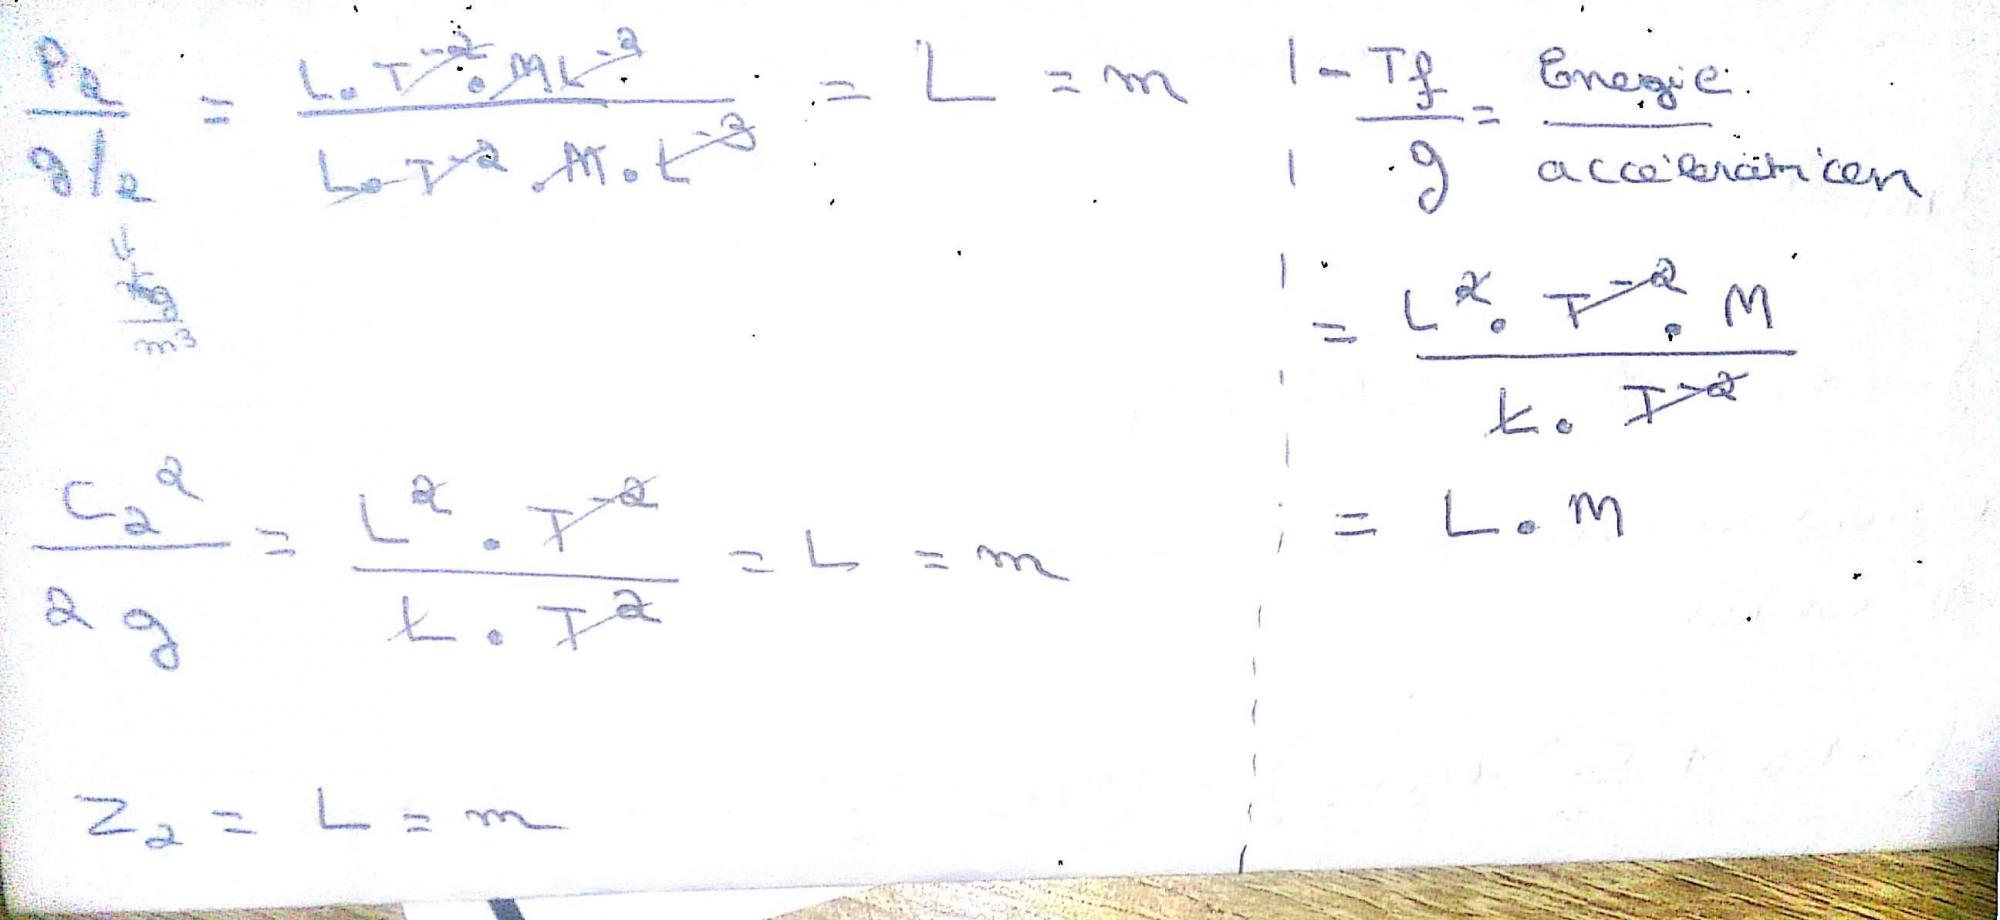 P₂/gρ₂ = L.T⁻².ML⁻²/L.T⁻².M.L⁻³ = L = m
↓
kg/m³
C₂²/2g = L².T⁻²/L.T⁻² = L = m
Z₂ = L = m
-Tf/g = Energie/accélération
= L².T⁻².M/L.T⁻²
= L.M